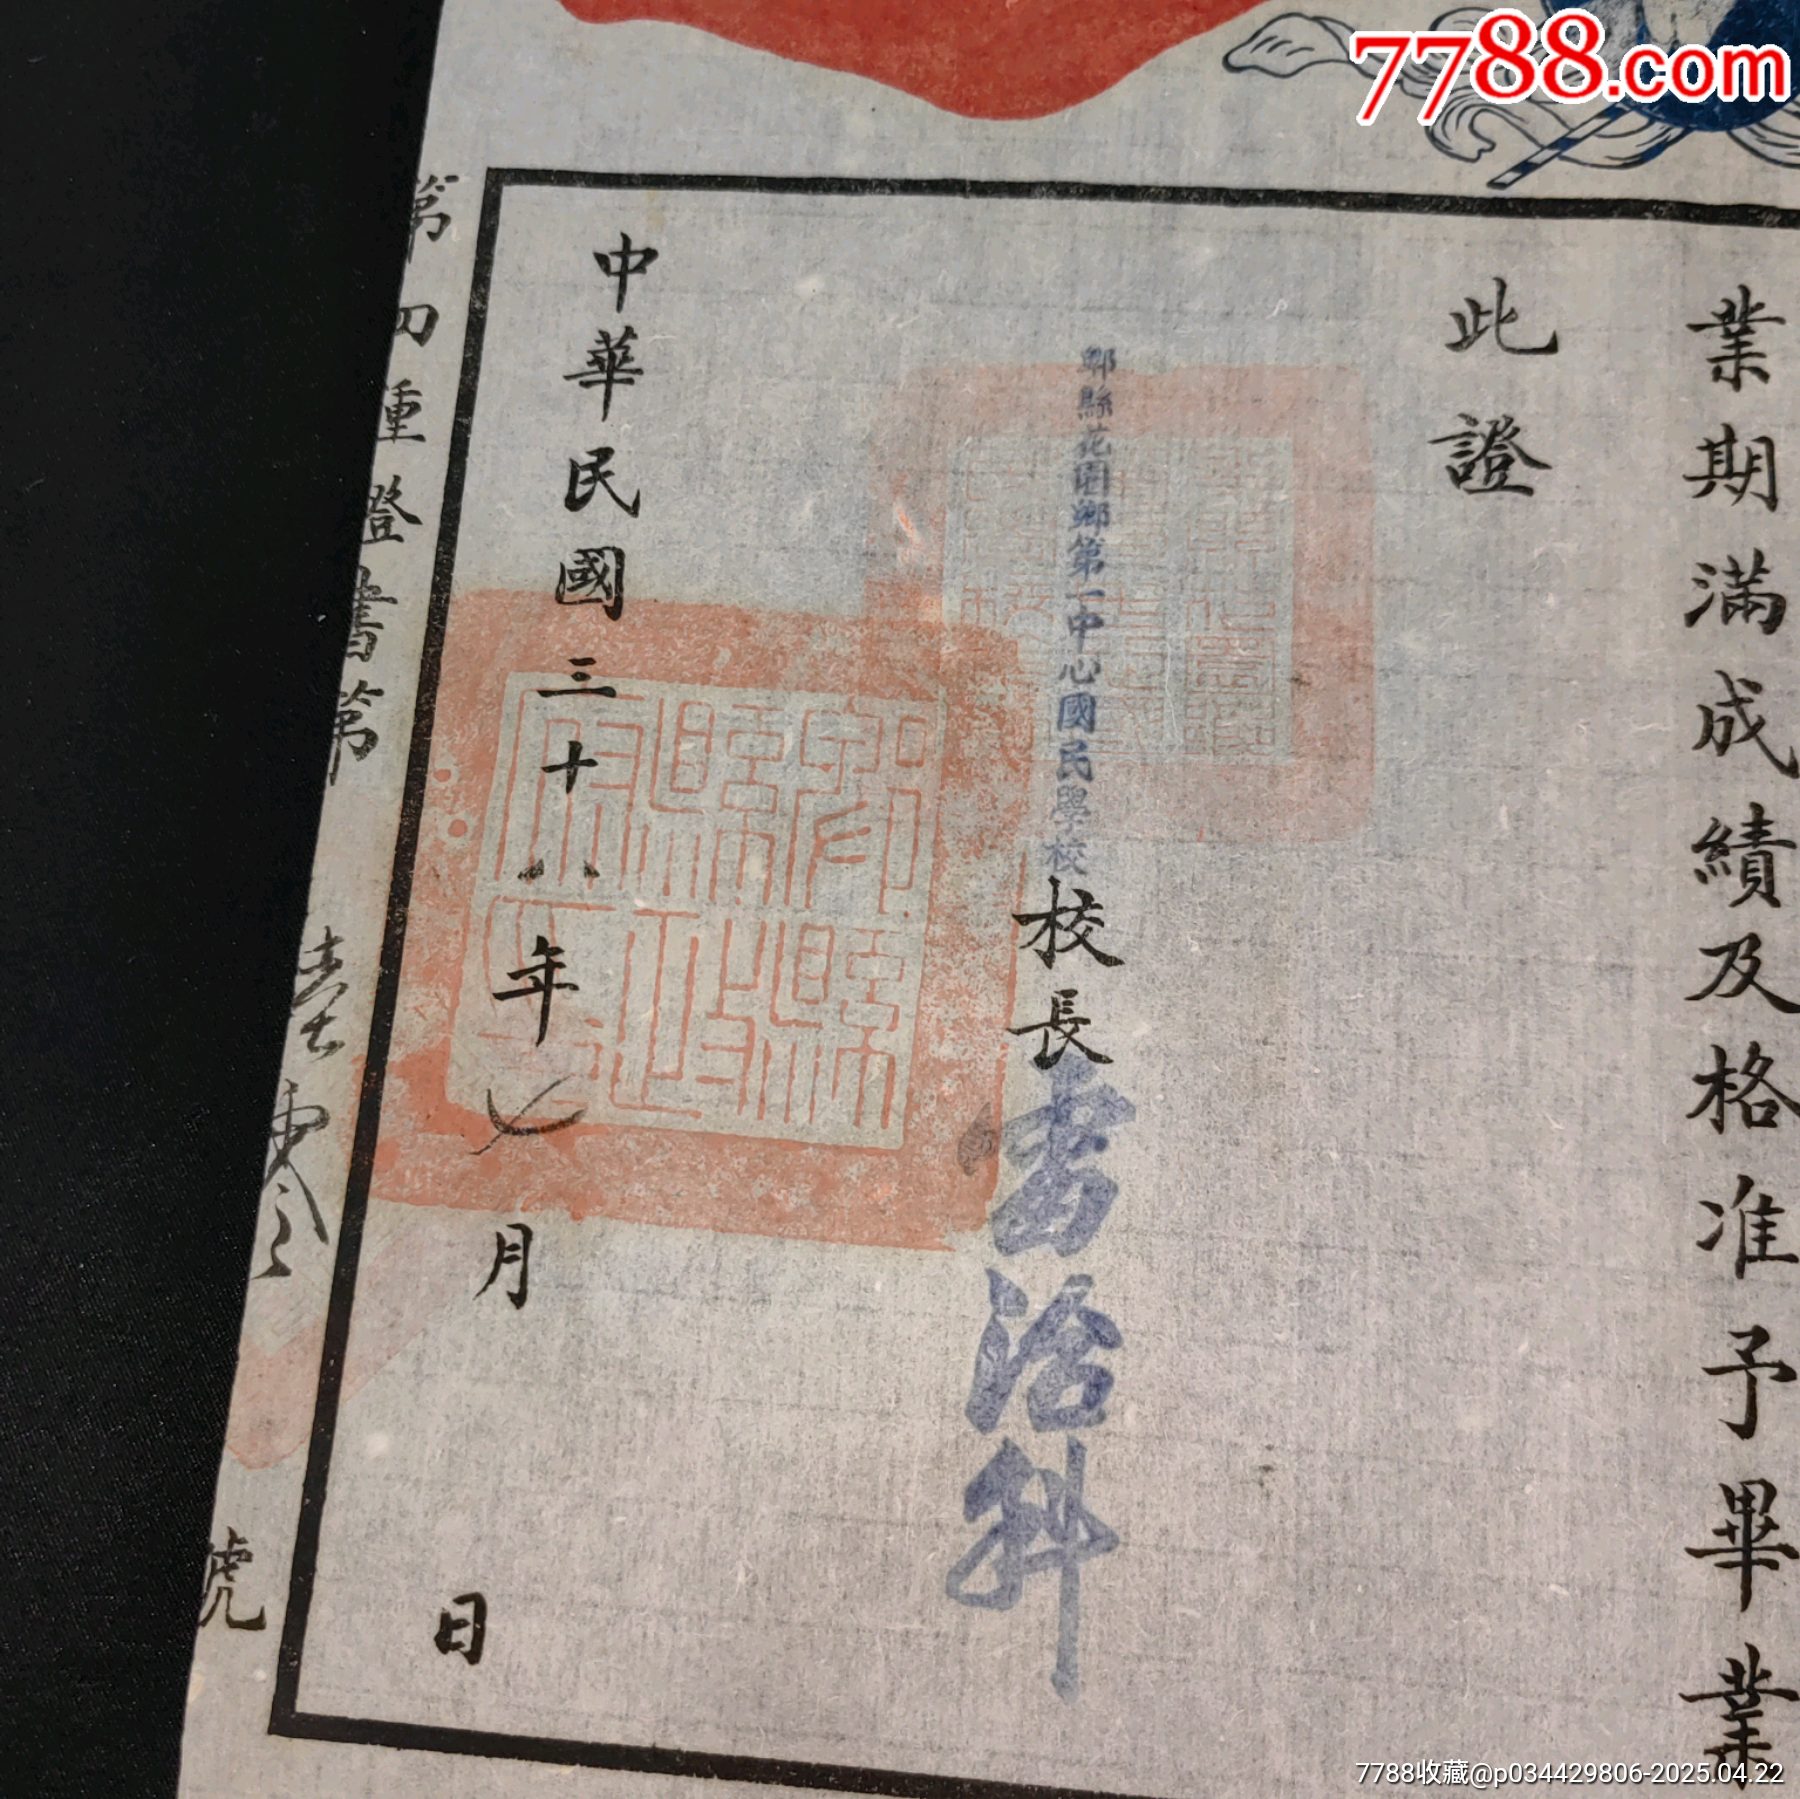 7788.com
業期滿成績及格准予畢業
此證
郫縣花園鄉第一中心國民學校
校長雷治科
中華民國三十八年七月
日
第四種證書第
壹零
號
7788收藏@p034429806-2025.04.22